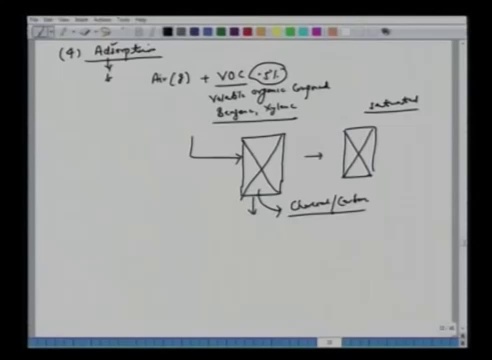 (4) Adsorption
Air (g) + VOC (~5%)
Volatile organic compound
Benzene, Xylene
saturated
Charcoal/Carbon